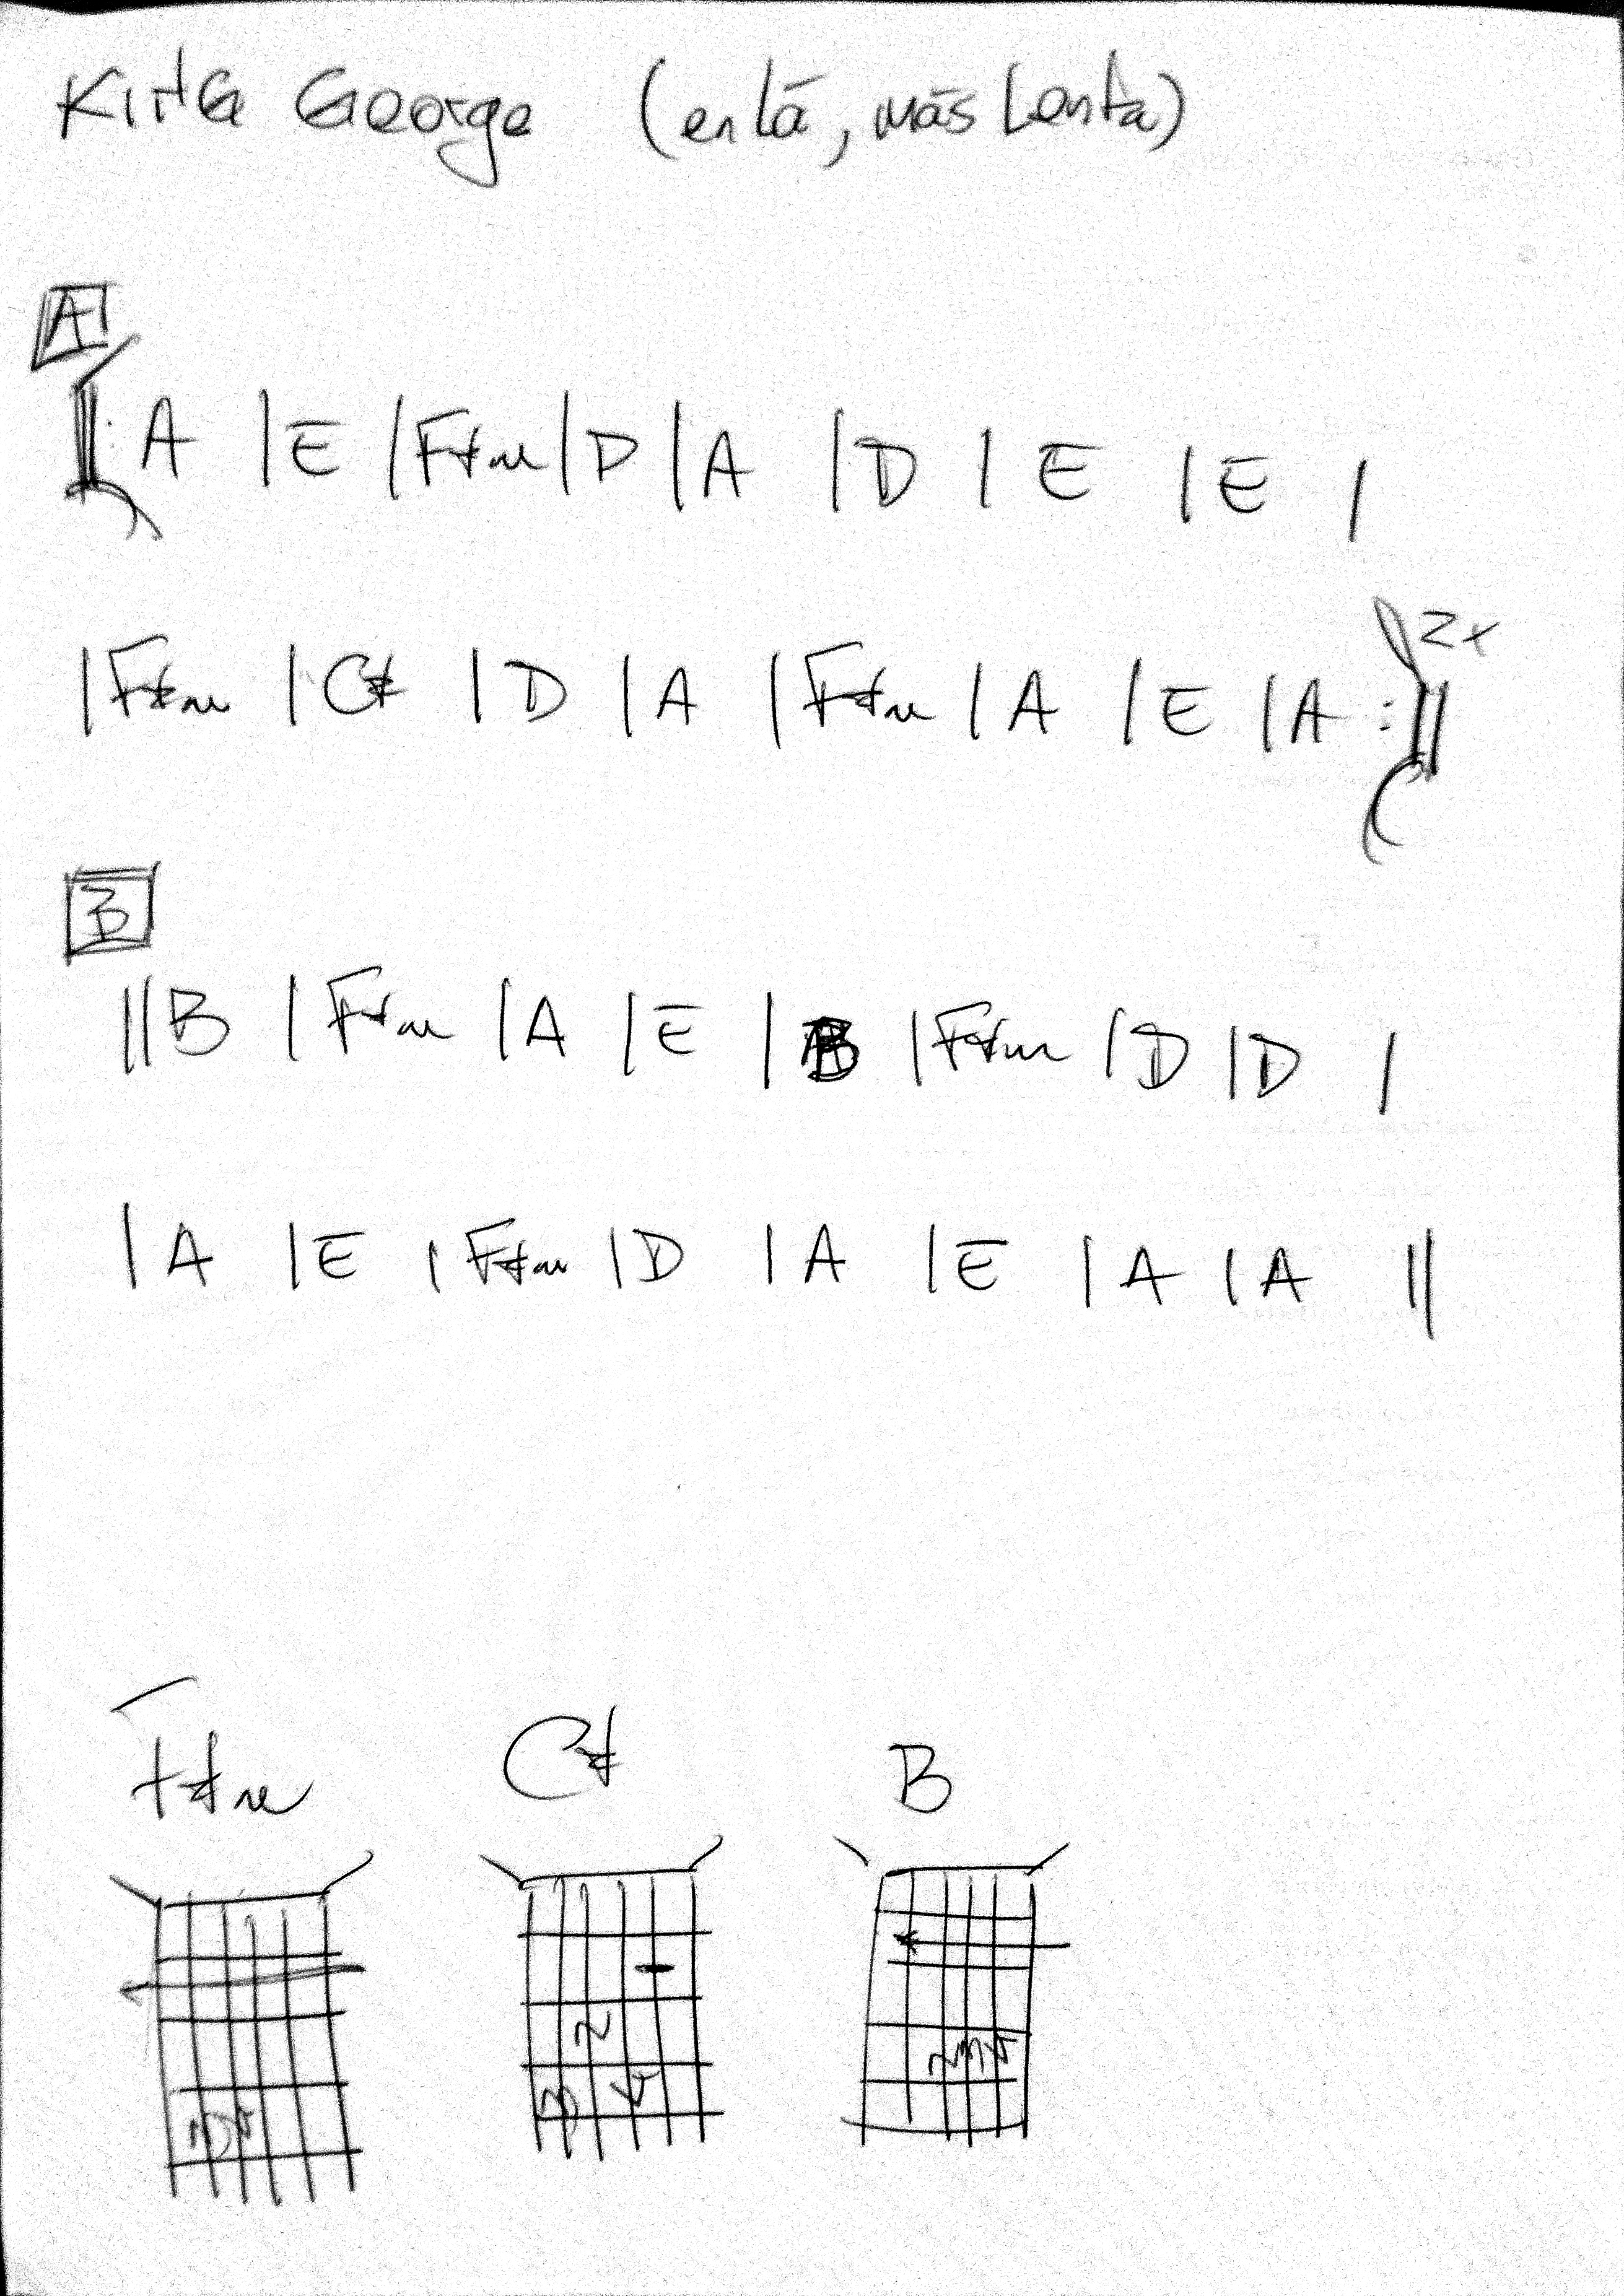 KING George (en lá, más lenta)
A
‖: A | E | F#m | D | A | D | E | E |
2x
| F#m | C# | D | A | F#m | A | E | A :‖
B
‖ B | F#m | A | E | B | F#m | D | D |
| A | E | F#m | D | A | E | A | A ‖
F#m C# B
2
2 3 4
3 4
3 4